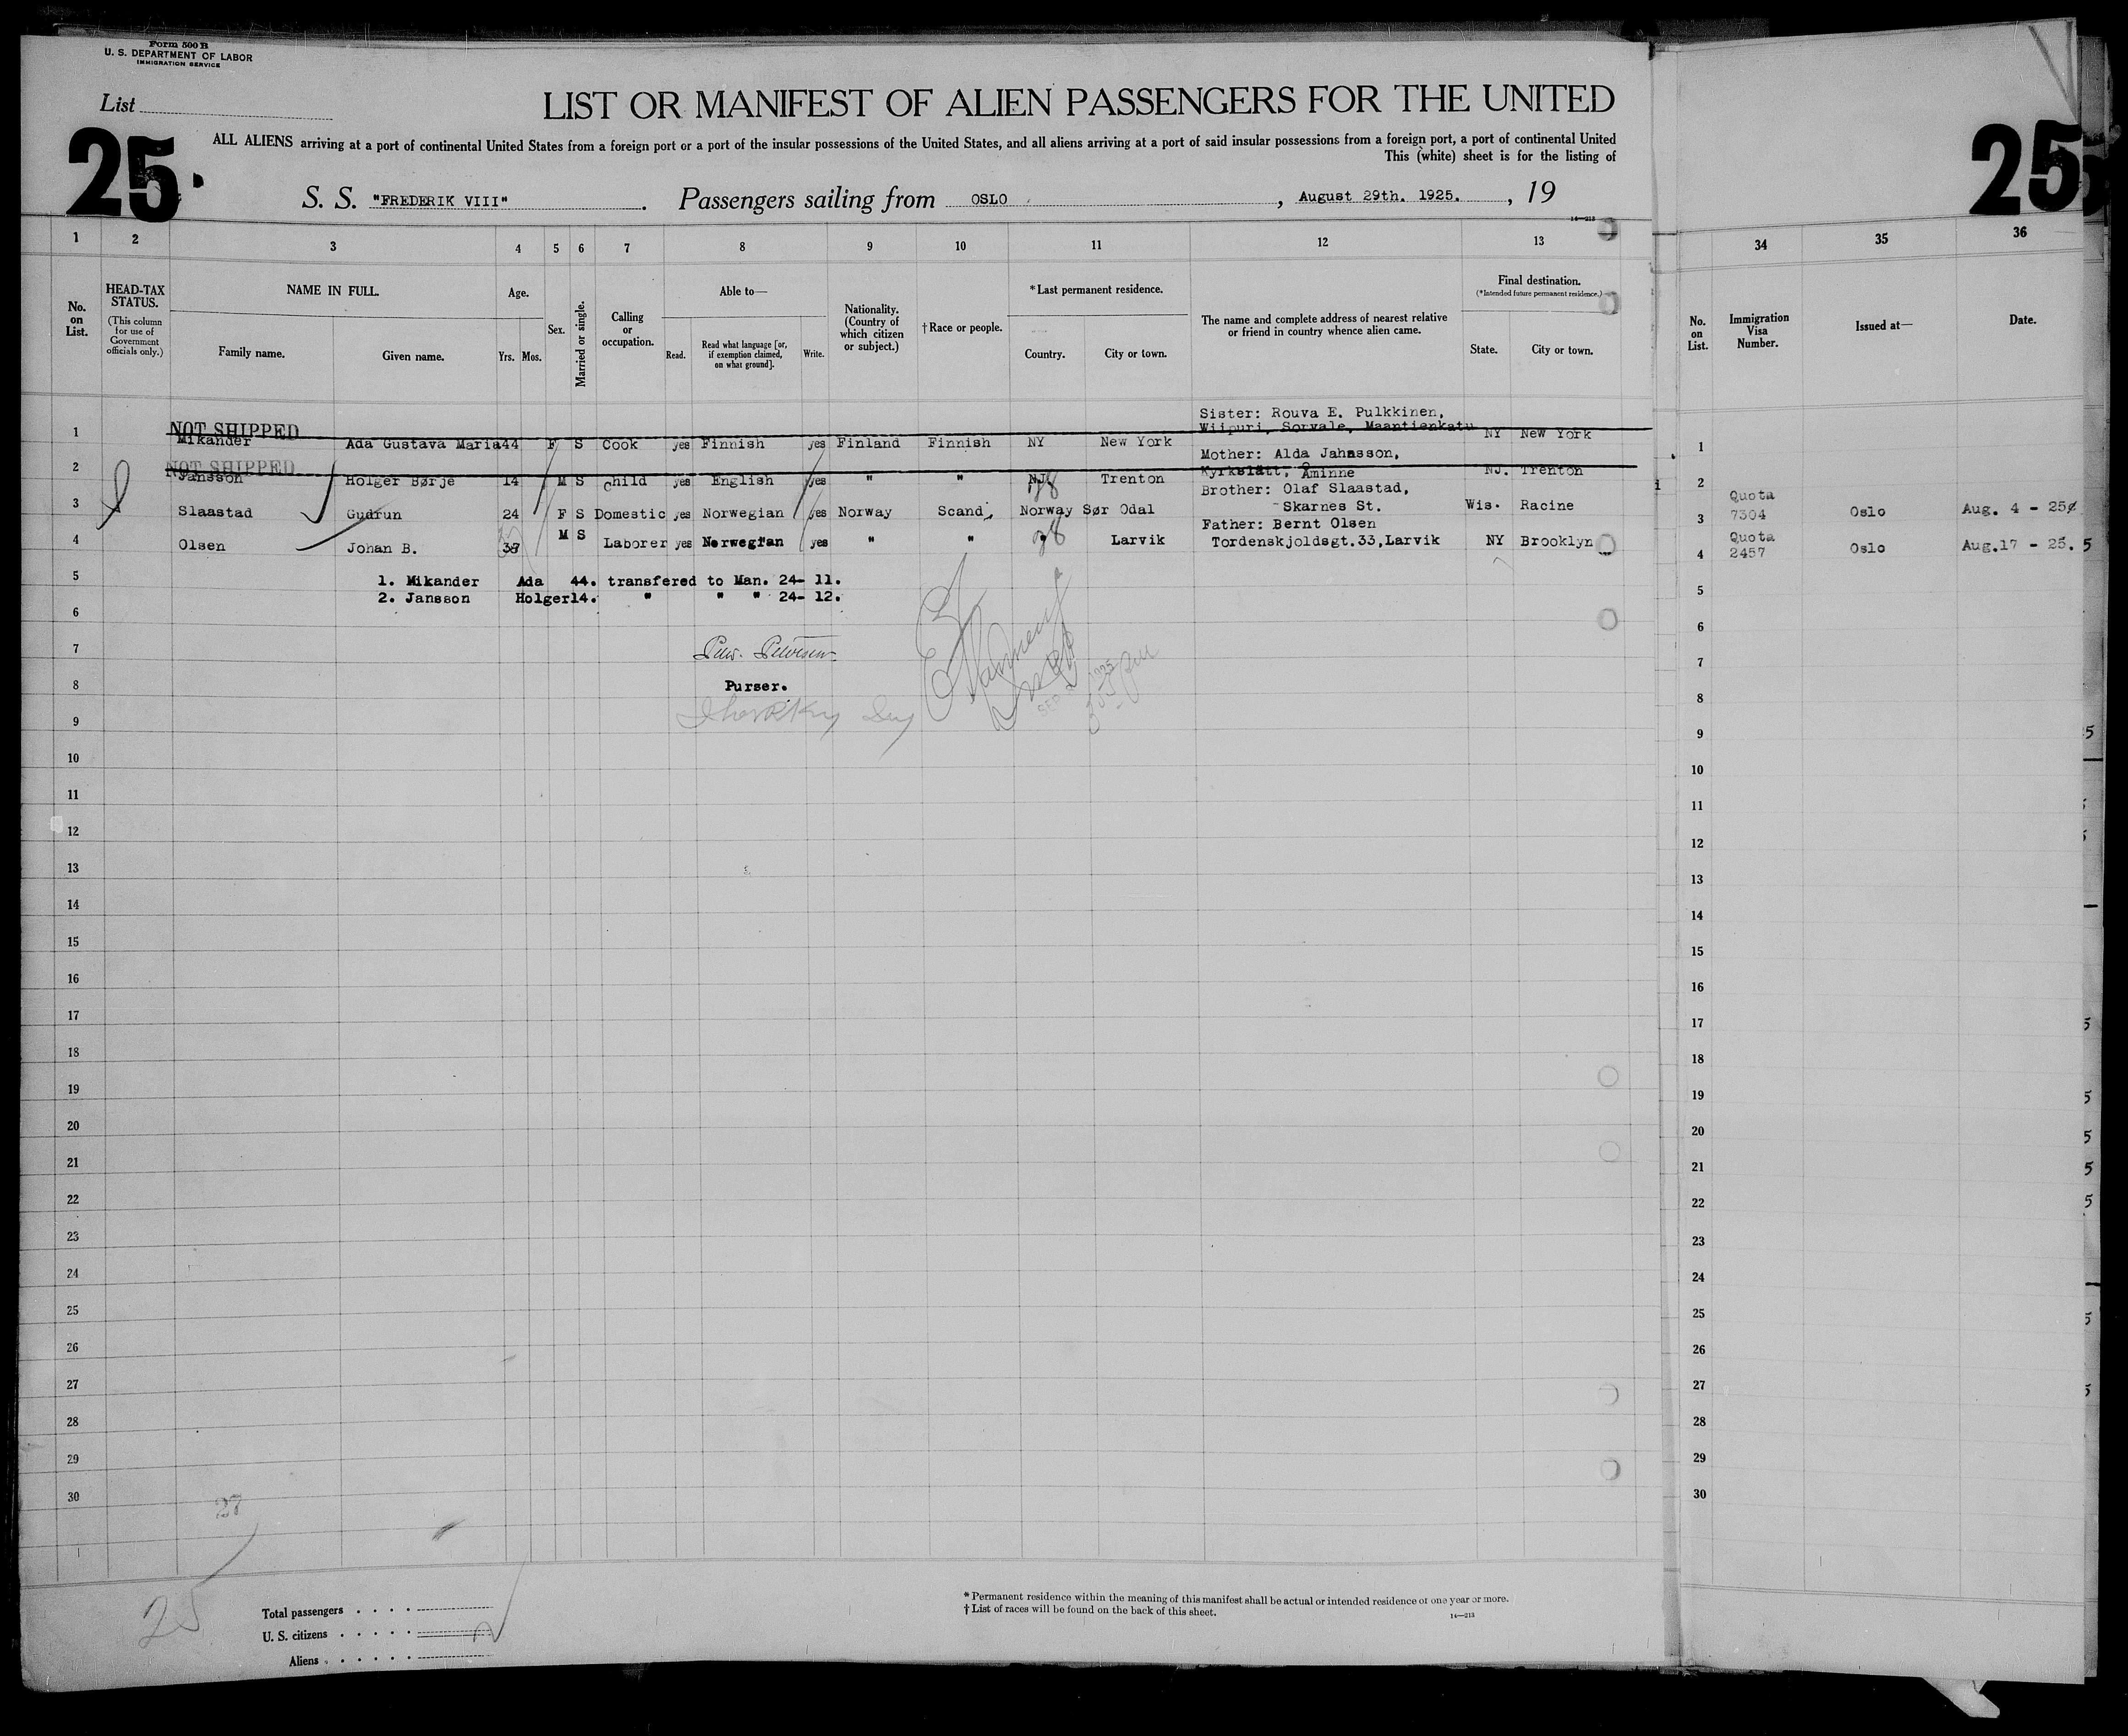 Form 500 B
U. S. DEPARTMENT OF LABOR
IMMIGRATION SERVICE
List
25
LIST OR MANIFEST OF ALIEN PASSENGERS FOR THE UNITED
ALL ALIENS arriving at a port of continental United States from a foreign port or a port of the insular possessions of the United States, and all aliens arriving at a port of said insular possessions from a foreign port, a port of continental United
This (white) sheet is for the listing of
S. S. "FREDERIK VIII". Passengers sailing from OSLO, August 29th. 1925., 19
14—213
25
1 2 3 4 5 6 7 8 9 10 11 12 13
34 35 36
No. on List.
HEAD-TAX STATUS.
(This column for use of Government officials only.)
NAME IN FULL.
Family name. Given name.
Age.
Yrs. Mos.
Sex.
Married or single.
Calling or occupation.
Able to—
Read. Read what language [or, if exemption claimed, on what ground]. Write.
Nationality. (Country of which citizen or subject.)
†Race or people.
*Last permanent residence.
Country. City or town.
The name and complete address of nearest relative or friend in country whence alien came.
Final destination.
(*Intended future permanent residence.)
State. City or town.
No. on List.
Immigration Visa Number.
Issued at—
Date.
NOT SHIPPED
1 Mikander Ada Gustava Maria 44 F S Cook yes Finnish yes Finland Finnish NY New York Sister: Rouva E. Pulkkinen,
Wiipuri, Sorvale, Maantienkatu NY New York
NOT SHIPPED
2 Jansson Holger Børje 14 M S child yes English yes " " NJ Trenton Mother: Alda Jahnsson,
Kyrkslätt, Åminne NJ. Trenton
3 Slaastad Gudrun 24 F S Domestic yes Norwegian yes Norway Scand. Norway Sør Odal Brother: Olaf Slaastad,
Skarnes St. Wis. Racine
Quota 7304 Oslo Aug. 4 - 25
4 Olsen Johan B. M S Laborer yes Norwegian yes " " " Larvik Father: Bernt Olsen
Tordenskjoldsgt.33,Larvik NY Brooklyn
Quota 2457 Oslo Aug.17 - 25.
5 1. Mikander Ada 44. transfered to Man. 24- 11.
2. Jansson Holger14. " " " 24- 12.
6
7
8 Purser.
9
10
11
12
13
14
15
16
17
18
19
20
21
22
23
24
25
26
27
28
29
30
1
2
3
4
5
6
7
8
9
10
11
12
13
14
15
16
17
18
19
20
21
22
23
24
25
26
27
28
29
30
27
25
Total passengers
U. S. citizens
Aliens
* Permanent residence within the meaning of this manifest shall be actual or intended residence of one year or more.
† List of races will be found on the back of this sheet.
14—213